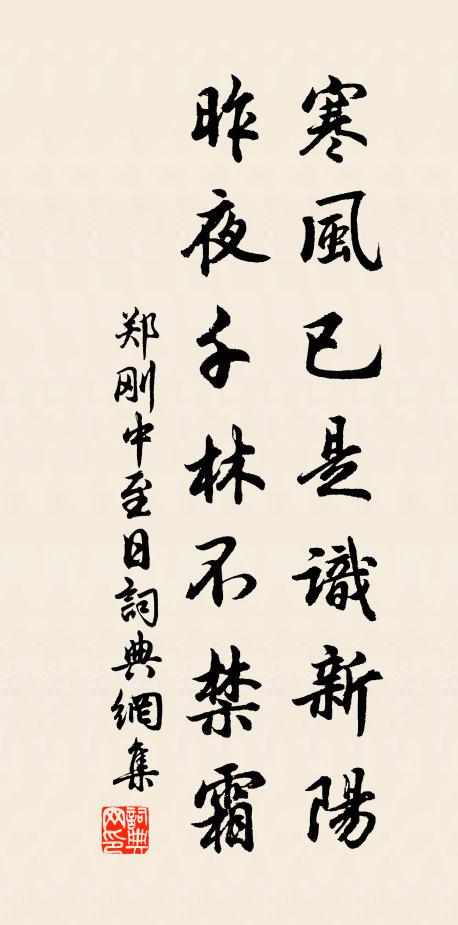 寒風已是識新陽
昨夜千林不禁霜
郑刚中至日詞典網集
詞典網印